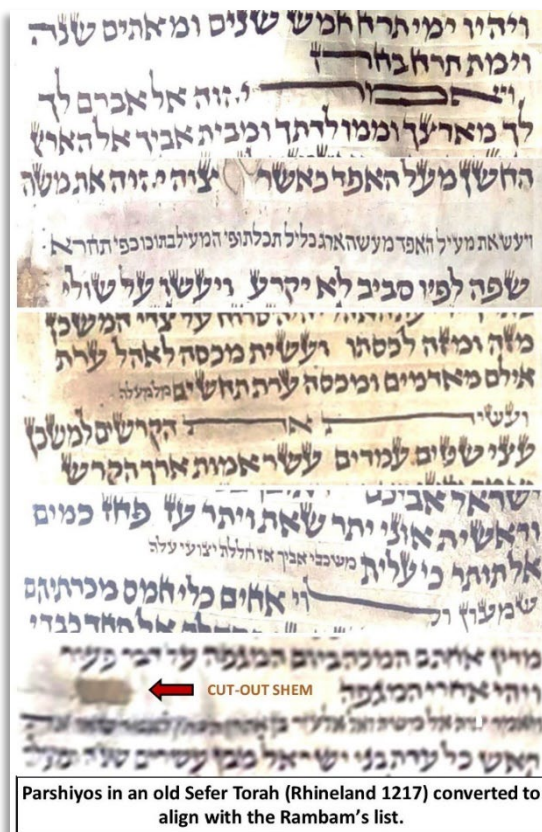 ויהיו ימי תרח חמש שנים ומאתים שנה
וימת תרח בחרן
ויאמר י.הוה אל אברם לך
לך מארצך וממולדתך ומבית אביך אל הארץ
החשן מעל האפד כאשר צוה י.הוה את משה
ויעש את מעיל האפד מעשה ארג כליל תכלת ופי המעיל בתוכו כפי תחרא
שפה לפיו סביב לא יקרע ויעשו על שולי
יהיה סרוח על צדי המשכן
מזה ומזה לכסתו ועשית מכסה לאהל ערת
אילם מאדמים ומכסה ערת תחשים מלמעלה
ועשית את הקרשים למשכן
עצי שטים עמדים עשר אמות ארך הקרש
ישראל אביכם
וראשית אוני יתר שאת ויתר עז פחז כמים
אל תותר כי עלית משכבי אביך אז חללת יצועי עלה
שמעון ולוי אחים כלי חמס מכרתיהם
אל תחד כבדי
מדין אחתם המכה ביום המגפה על דבר פעור
ויהי אחרי המגפה
CUT-OUT SHEM
ויאמר אל משה ואל אלעזר בן אהרן הכהן לאמר שאו את
ראש כל עדת בני ישראל מבן עשרים שנה ומעלה
Parshiyos in an old Sefer Torah (Rhineland 1217) converted to
align with the Rambam's list.